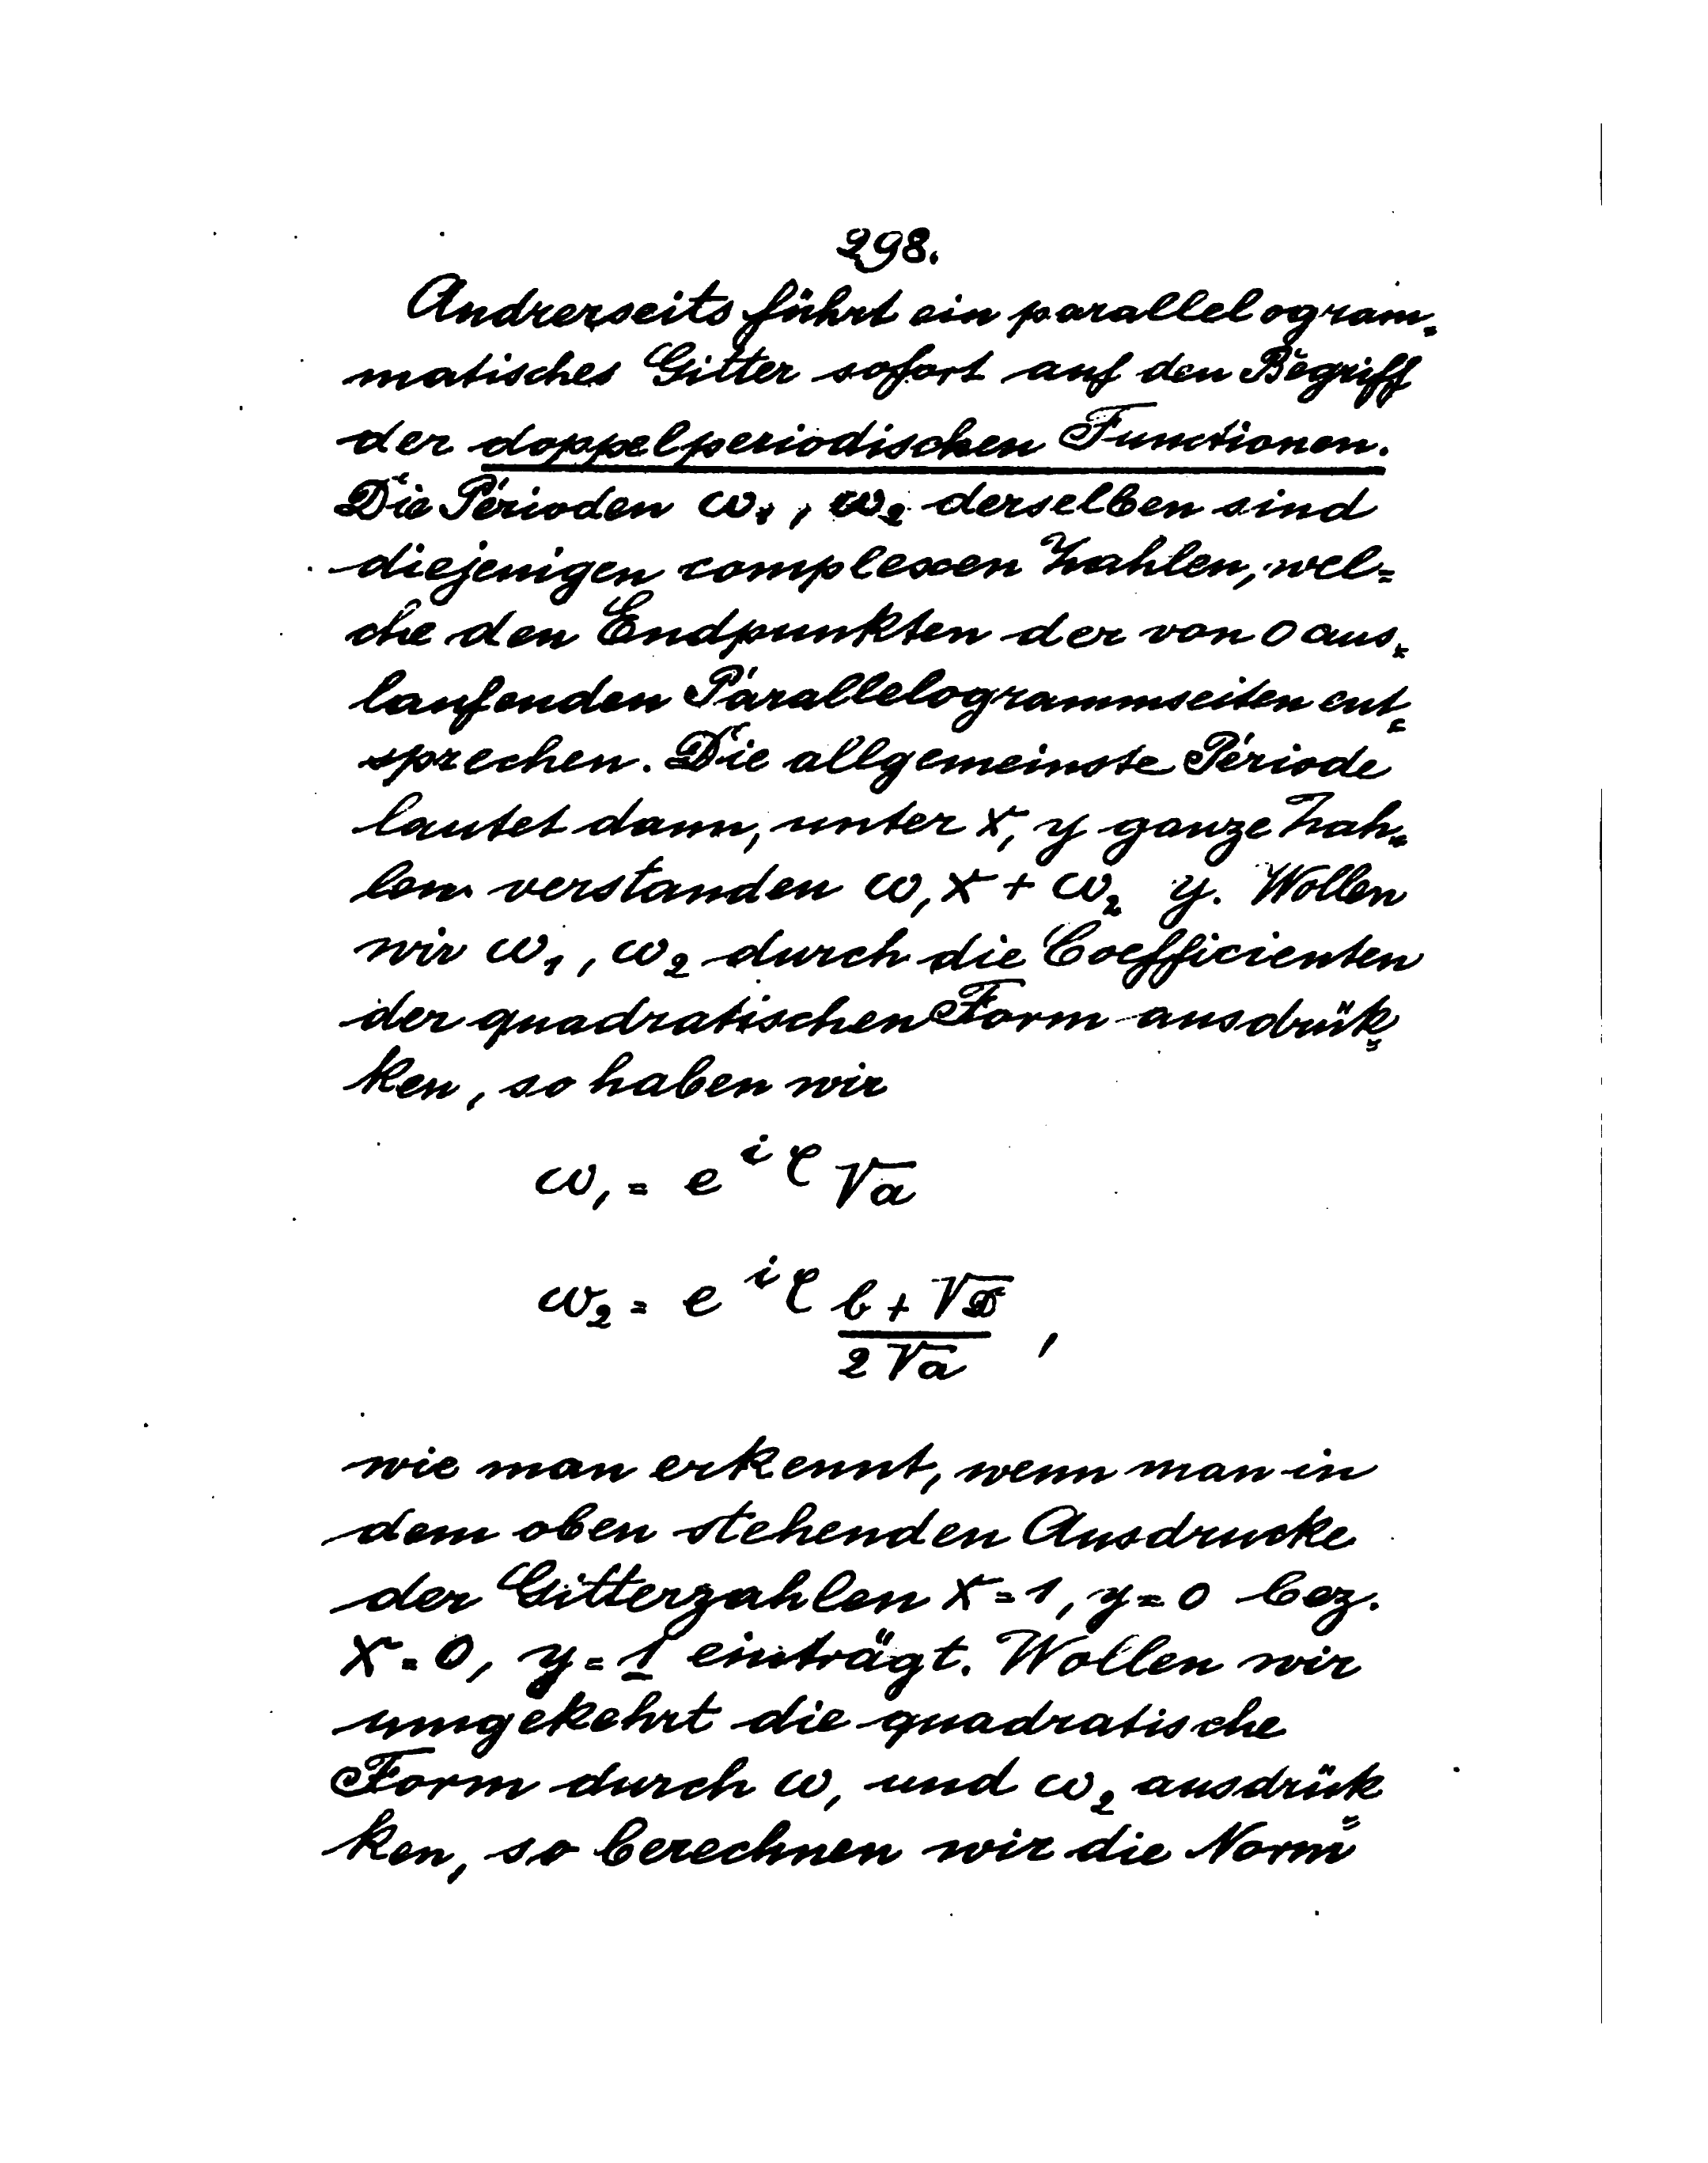 298.
Andrerseits führt ein parallelogram=
matisches Gitter sofort auf den Begriff
der doppelperiodischen Functionen.
Die Perioden ω₁, ω₂ derselben sind
diejenigen complexen Zahlen, wel=
che den Endpunkten der von 0 aus=
laufenden Parallelogrammseiten ent=
sprechen. Die allgemeinste Periode
lautet dann, unter x, y ganze Zah=
len verstanden ω₁x + ω₂ y. Wollen
wir ω₁, ω₂ durch die Coefficienten
der quadratischen Form ausdrük=
ken, so haben wir
ω₁ = e^{iτ} √a
ω₂ = e^{iτ} (b + √D) / (2√a) ,
wie man erkennt, wenn man in
dem oben stehenden Ausdrucke
der Gitterzahlen x = 1, y = 0 bez.
x = 0, y = 1 einträgt. Wollen wir
umgekehrt die quadratische
Form durch ω₁ und ω₂ ausdrük=
ken, so berechnen wir die Norm